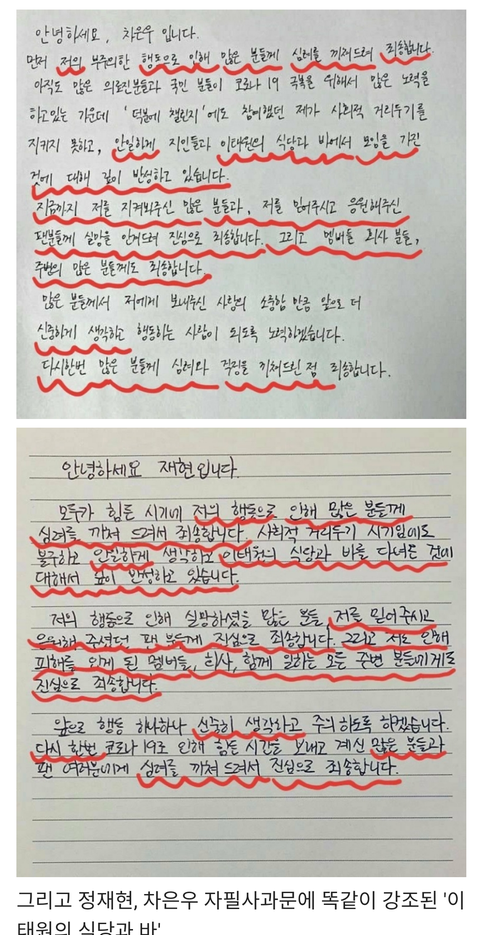 안녕하세요, 차은우 입니다.
먼저 저의 부주의한 행동으로 인해 많은 분들께 심려를 끼쳐드려 죄송합니다.
아직도 많은 의료진분들과 국민 분들이 코로나 19 극복을 위해서 많은 노력을
하고있는 가운데 '덕분에 챌린지'에도 참여했던 제가 사회적 거리두기를
지키지 못하고, 안일하게 지인들과 이태원의 식당과 바에서 모임을 가진
것에 대해 깊이 반성하고 있습니다.
지금까지 저를 지켜봐주신 많은 분들과, 저를 믿어주시고 응원해주신
팬분들께 실망을 안겨드려 진심으로 죄송합니다. 그리고 멤버들 회사 분들,
주변의 많은 분들께도 죄송합니다.
많은 분들께서 저에게 보내주신 사랑의 소중함 만큼 앞으로 더
신중하게 생각하고 행동하는 사람이 되도록 노력하겠습니다.
다시한번 많은 분들께 심려와 걱정을 끼쳐드린 점 죄송합니다.
안녕하세요 재현입니다.
모두가 힘든 시기에 저의 행동으로 인해 많은 분들께
심려를 끼쳐 드려서 죄송합니다. 사회적 거리두기 시기임에도
불구하고 안일하게 생각하고 이태원의 식당과 바를 다녀온 것에
대해서 깊이 반성하고 있습니다.
저의 행동으로 인해 실망하셨을 많은 분들, 저를 믿어주시고
응원해 주셨던 팬 분들께 진심으로 죄송합니다. 그리고 저로 인해
피해를 입게 된 멤버들, 회사, 함께 일하는 모든 주변 분들에게도
진심으로 죄송합니다.
앞으로 행동 하나하나 신중히 생각하고 주의하도록 하겠습니다.
다시 한번 코로나 19로 인해 힘든 시간을 보내고 계신 많은 분들과
팬 여러분에게 심려를 끼쳐 드려서 진심으로 죄송합니다.
그리고 정재현, 차은우 자필사과문에 똑같이 강조된 '이
태원의 식당과 바'